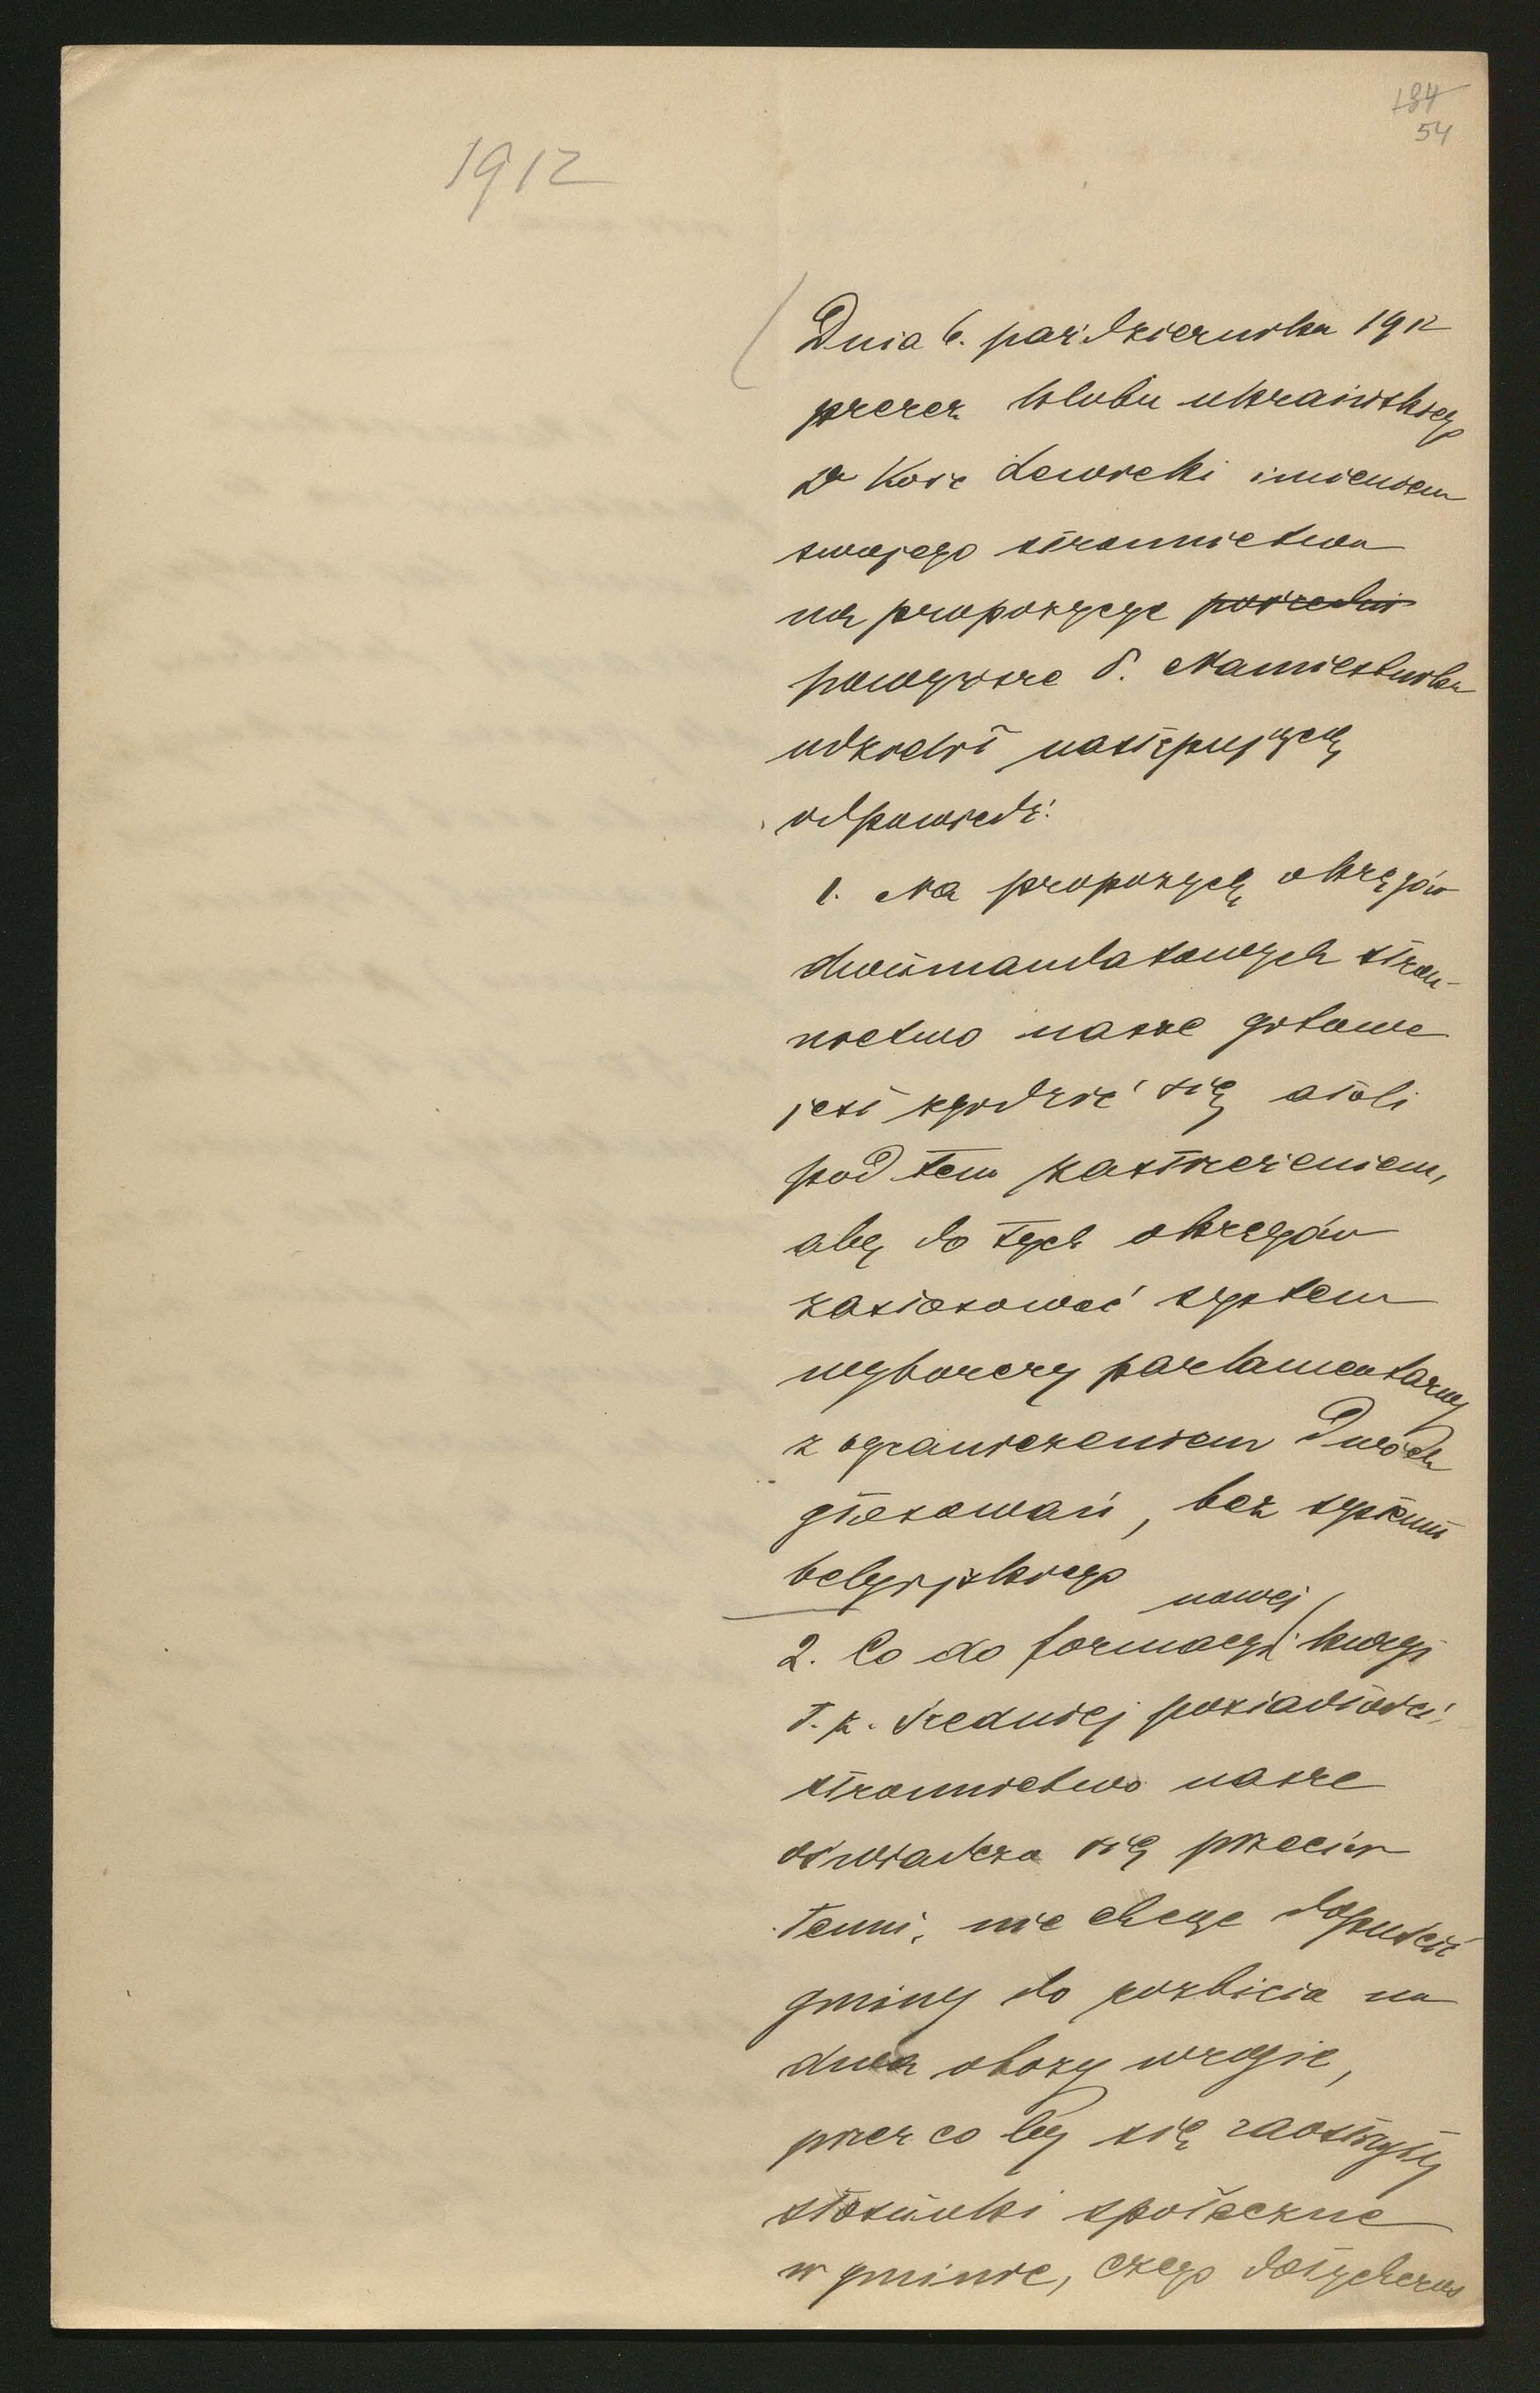 184
54
1912
Dnia 6. października 1912
prezes klubu ukraińskiego
Dr Kość Lewicki imieniem
swojego stronnictwa
na propozycye pośredni
powyższe P. Namiestnika
udzielił następującą
odpowiedź:
1. Na propozycyę okręgów
dwumandatowych stron-
nictwo nasze gotowe
jest zgodzić się atoli
pod tem zastrzeżeniem,
aby do tych okręgów
zastosować system
wyborczy parlamentarny
z ograniczeniem dwóch
głosowań, bez systemu
belgijskiego
nowej
2. Co do formacyi kuryi
t. z. średniej posiadłości,
stronnictwo nasze
oświadcza się przeciw
temu, nie chcąc dopuścić
gminy do rozbicia na
dwa obozy wrogie,
przez co by się zaostrzyły
stosunki społeczne
w gminie, czego dotychczas